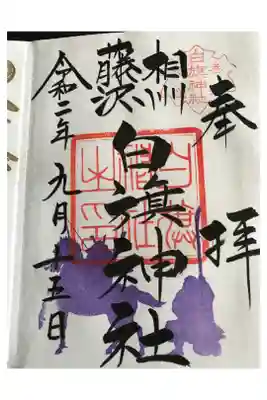 奉拝
白旗神社
相州
藤沢
白旗神社
令和二年九月十五日